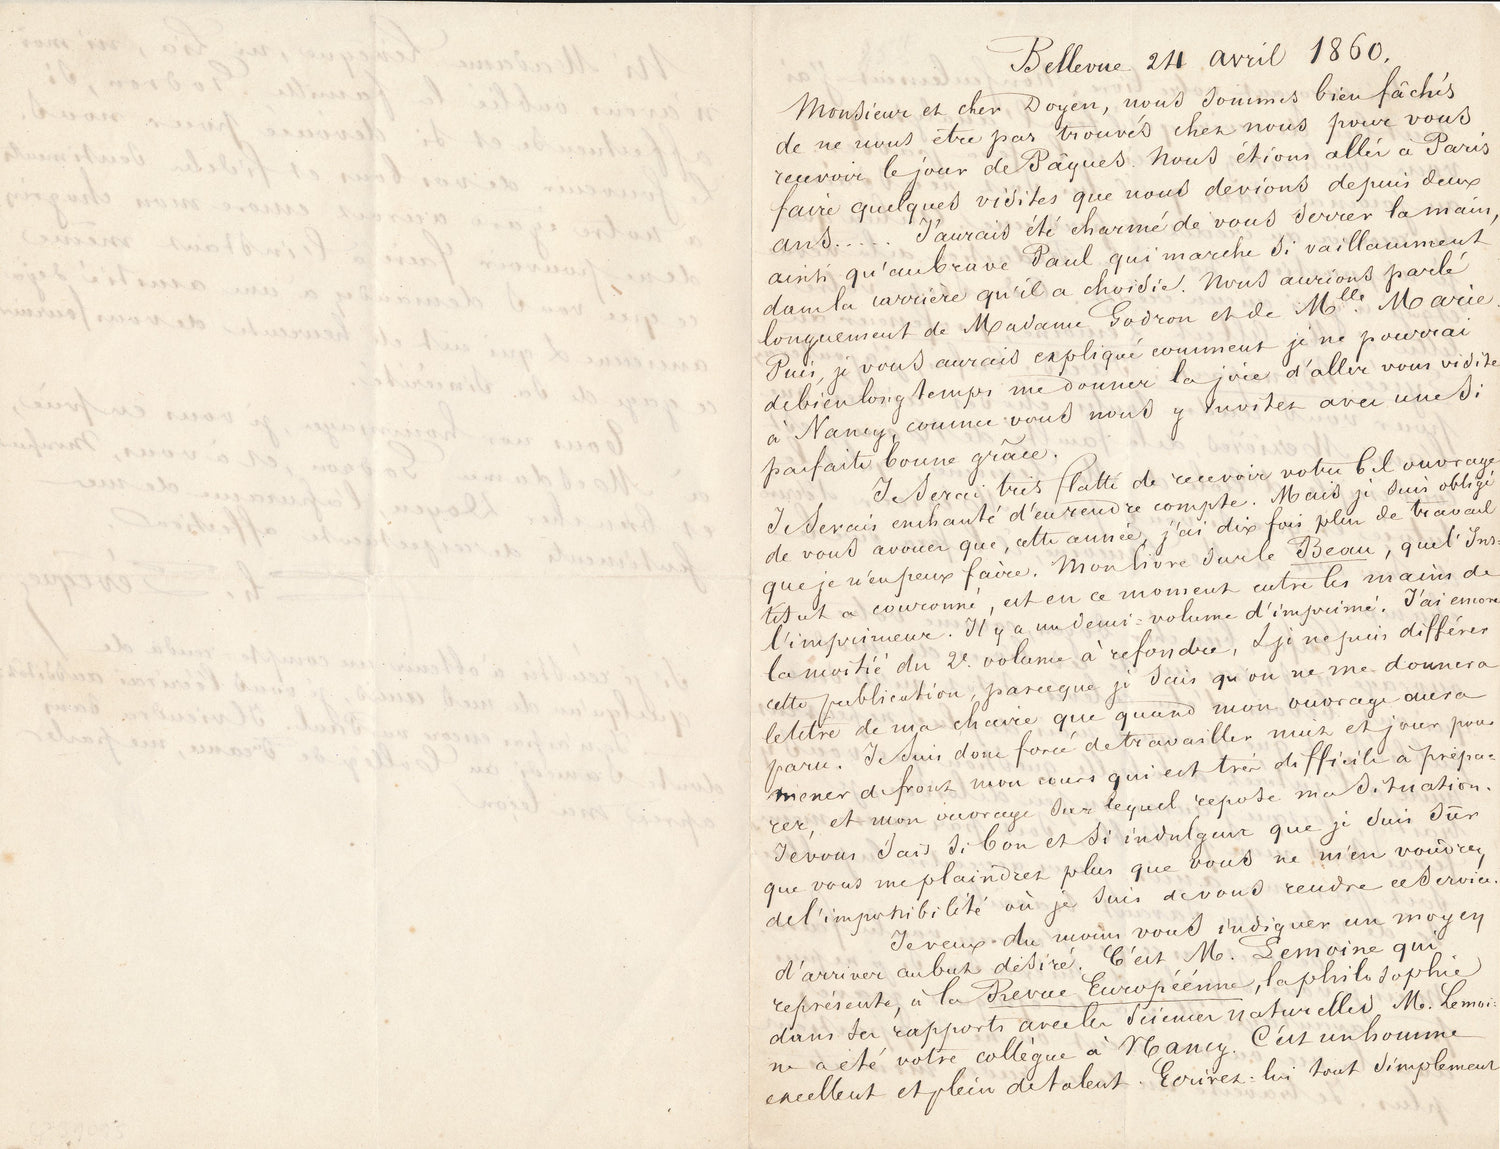 Bellevue 24 avril 1860.
Monsieur et cher Doyen, nous sommes bien fâchés
de ne nous être pas trouvés chez nous pour vous
recevoir le jour de Pâques. Nous étions allés à Paris
faire quelques visites que nous devions depuis deux
ans..... J'aurais été charmé de vous serrer la main,
ainsi qu'au brave Paul qui marche si vaillamment
dans la carrière qu'il a choisie. Nous aurions parlé
longuement de Madame Godron et de Mlle Marie.
Puis, je vous aurais expliqué comment je ne pourrai
de bien longtemps me donner la joie d'aller vous visiter
à Nancy, comme vous nous y invitez avec une si
parfaite bonne grâce.
Je serai très flatté de recevoir votre bel ouvrage
Je serais enchanté d'en rendre compte. Mais je suis obligé
de vous avouer que, cette année, j'ai dix fois plus de travail
que je n'en peux faire. Mon livre sur le Beau, que l'Ins=
titut a couronné, est en ce moment entre les mains de
l'imprimeur. Il y a un demi=volume d'imprimé. J'ai encore
la moitié du 2e. volume à refondre, & je ne puis différer
cette publication, parceque je sais qu'on ne me donnera
le titre de ma chaire que quand mon ouvrage aura
paru. Je suis donc forcé de travailler nuit et jour pour
mener de front mon cours qui est très difficile à prépa=
rer, et mon ouvrage sur lequel repose ma situation.
Je vous sais si bon et si indulgent que je suis sûr
que vous me plaindrez plus que vous ne m'en voudrez
de l'impossibilité où je suis de vous rendre ce service.
Je veux du moins vous indiquer un moyen
d'arriver au but désiré. C'est M. Lemoine qui
représente, à la Revue Européénne, la philosophie
dans ses rapports avec les sciences naturelles M. Lemoi=
ne a été votre collègue à Nancy. C'est un homme
excellent et plein de talent. Ecrivez=lui tout simplement